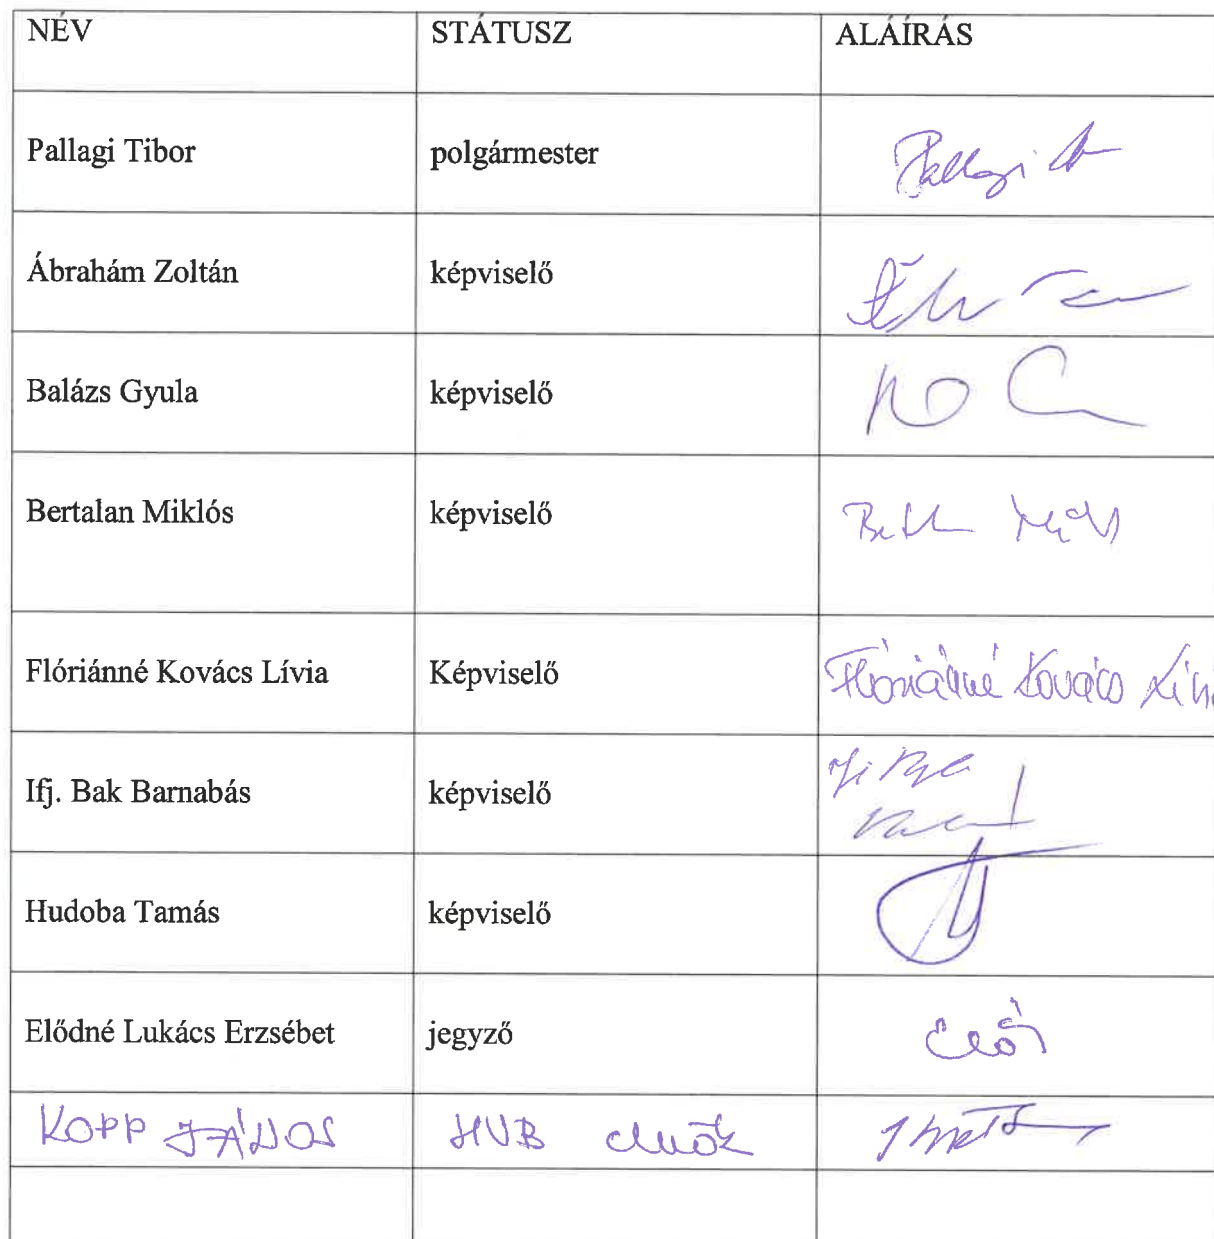 NÉV STÁTUSZ ALÁÍRÁS
Pallagi Tibor polgármester Pallagi
Ábrahám Zoltán képviselő
Balázs Gyula képviselő
Bertalan Miklós képviselő
Flóriánné Kovács Lívia Képviselő Flóriánné Kovács
Ifj. Bak Barnabás képviselő
Hudoba Tamás képviselő
Elődné Lukács Erzsébet jegyző
KOPP JÁNOS HVB elnök